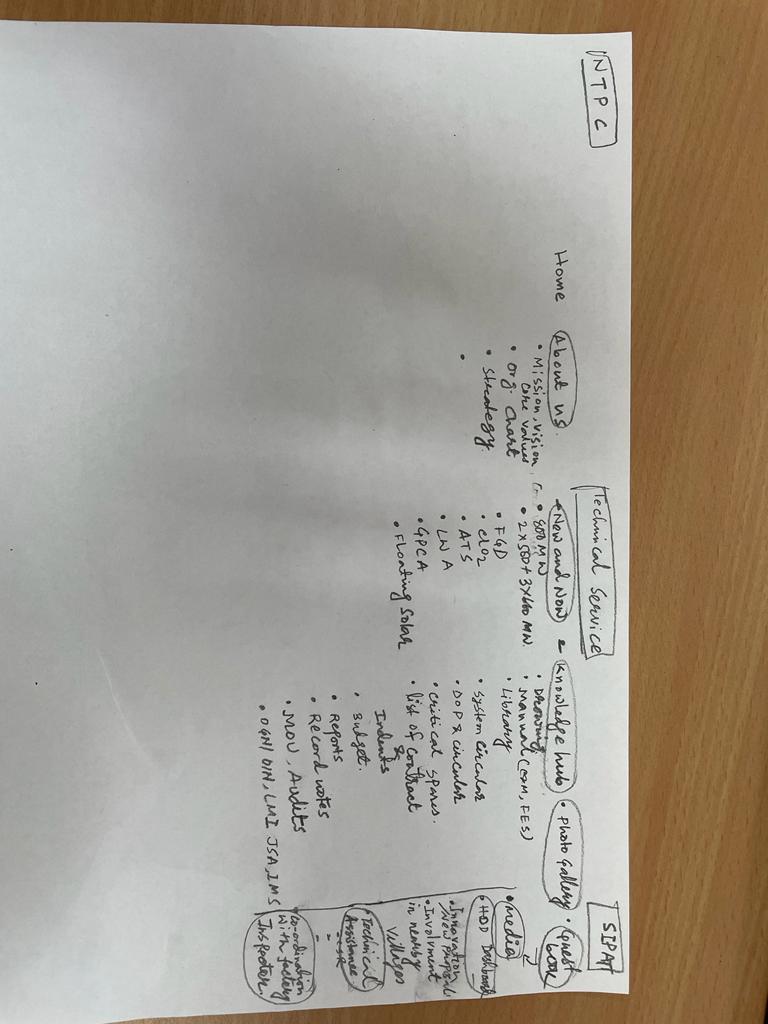 NTPC
Technical Service
SIPAT
Home
About us.
• Mission, vision,
core values
• Org. Chart
• Strategy.
•
New and Now
• 800 MW
• 2x500 + 3x660 MW.
• FGD
• ClO2
• ATS
• LWA
• GPCA
• Floating Solar
Knowledge hub
• Drawing
• Manual (O&M, FES)
• Library
• System circular
• DOP & circular
• Critical spares.
• List of contract
&
Indents
• Budget.
• Reports
• Record notes
• MOU, Audits
• OGN/OIN, LMI JSA, IMS
• Photo Gallery
• Guest
book
• Media
• HOD Dashboard
• Innovation
/New Proposal
• Involvment
in nearby
Villages
• Technical
Assistance
• Co-ordination
With factory
Inspector.